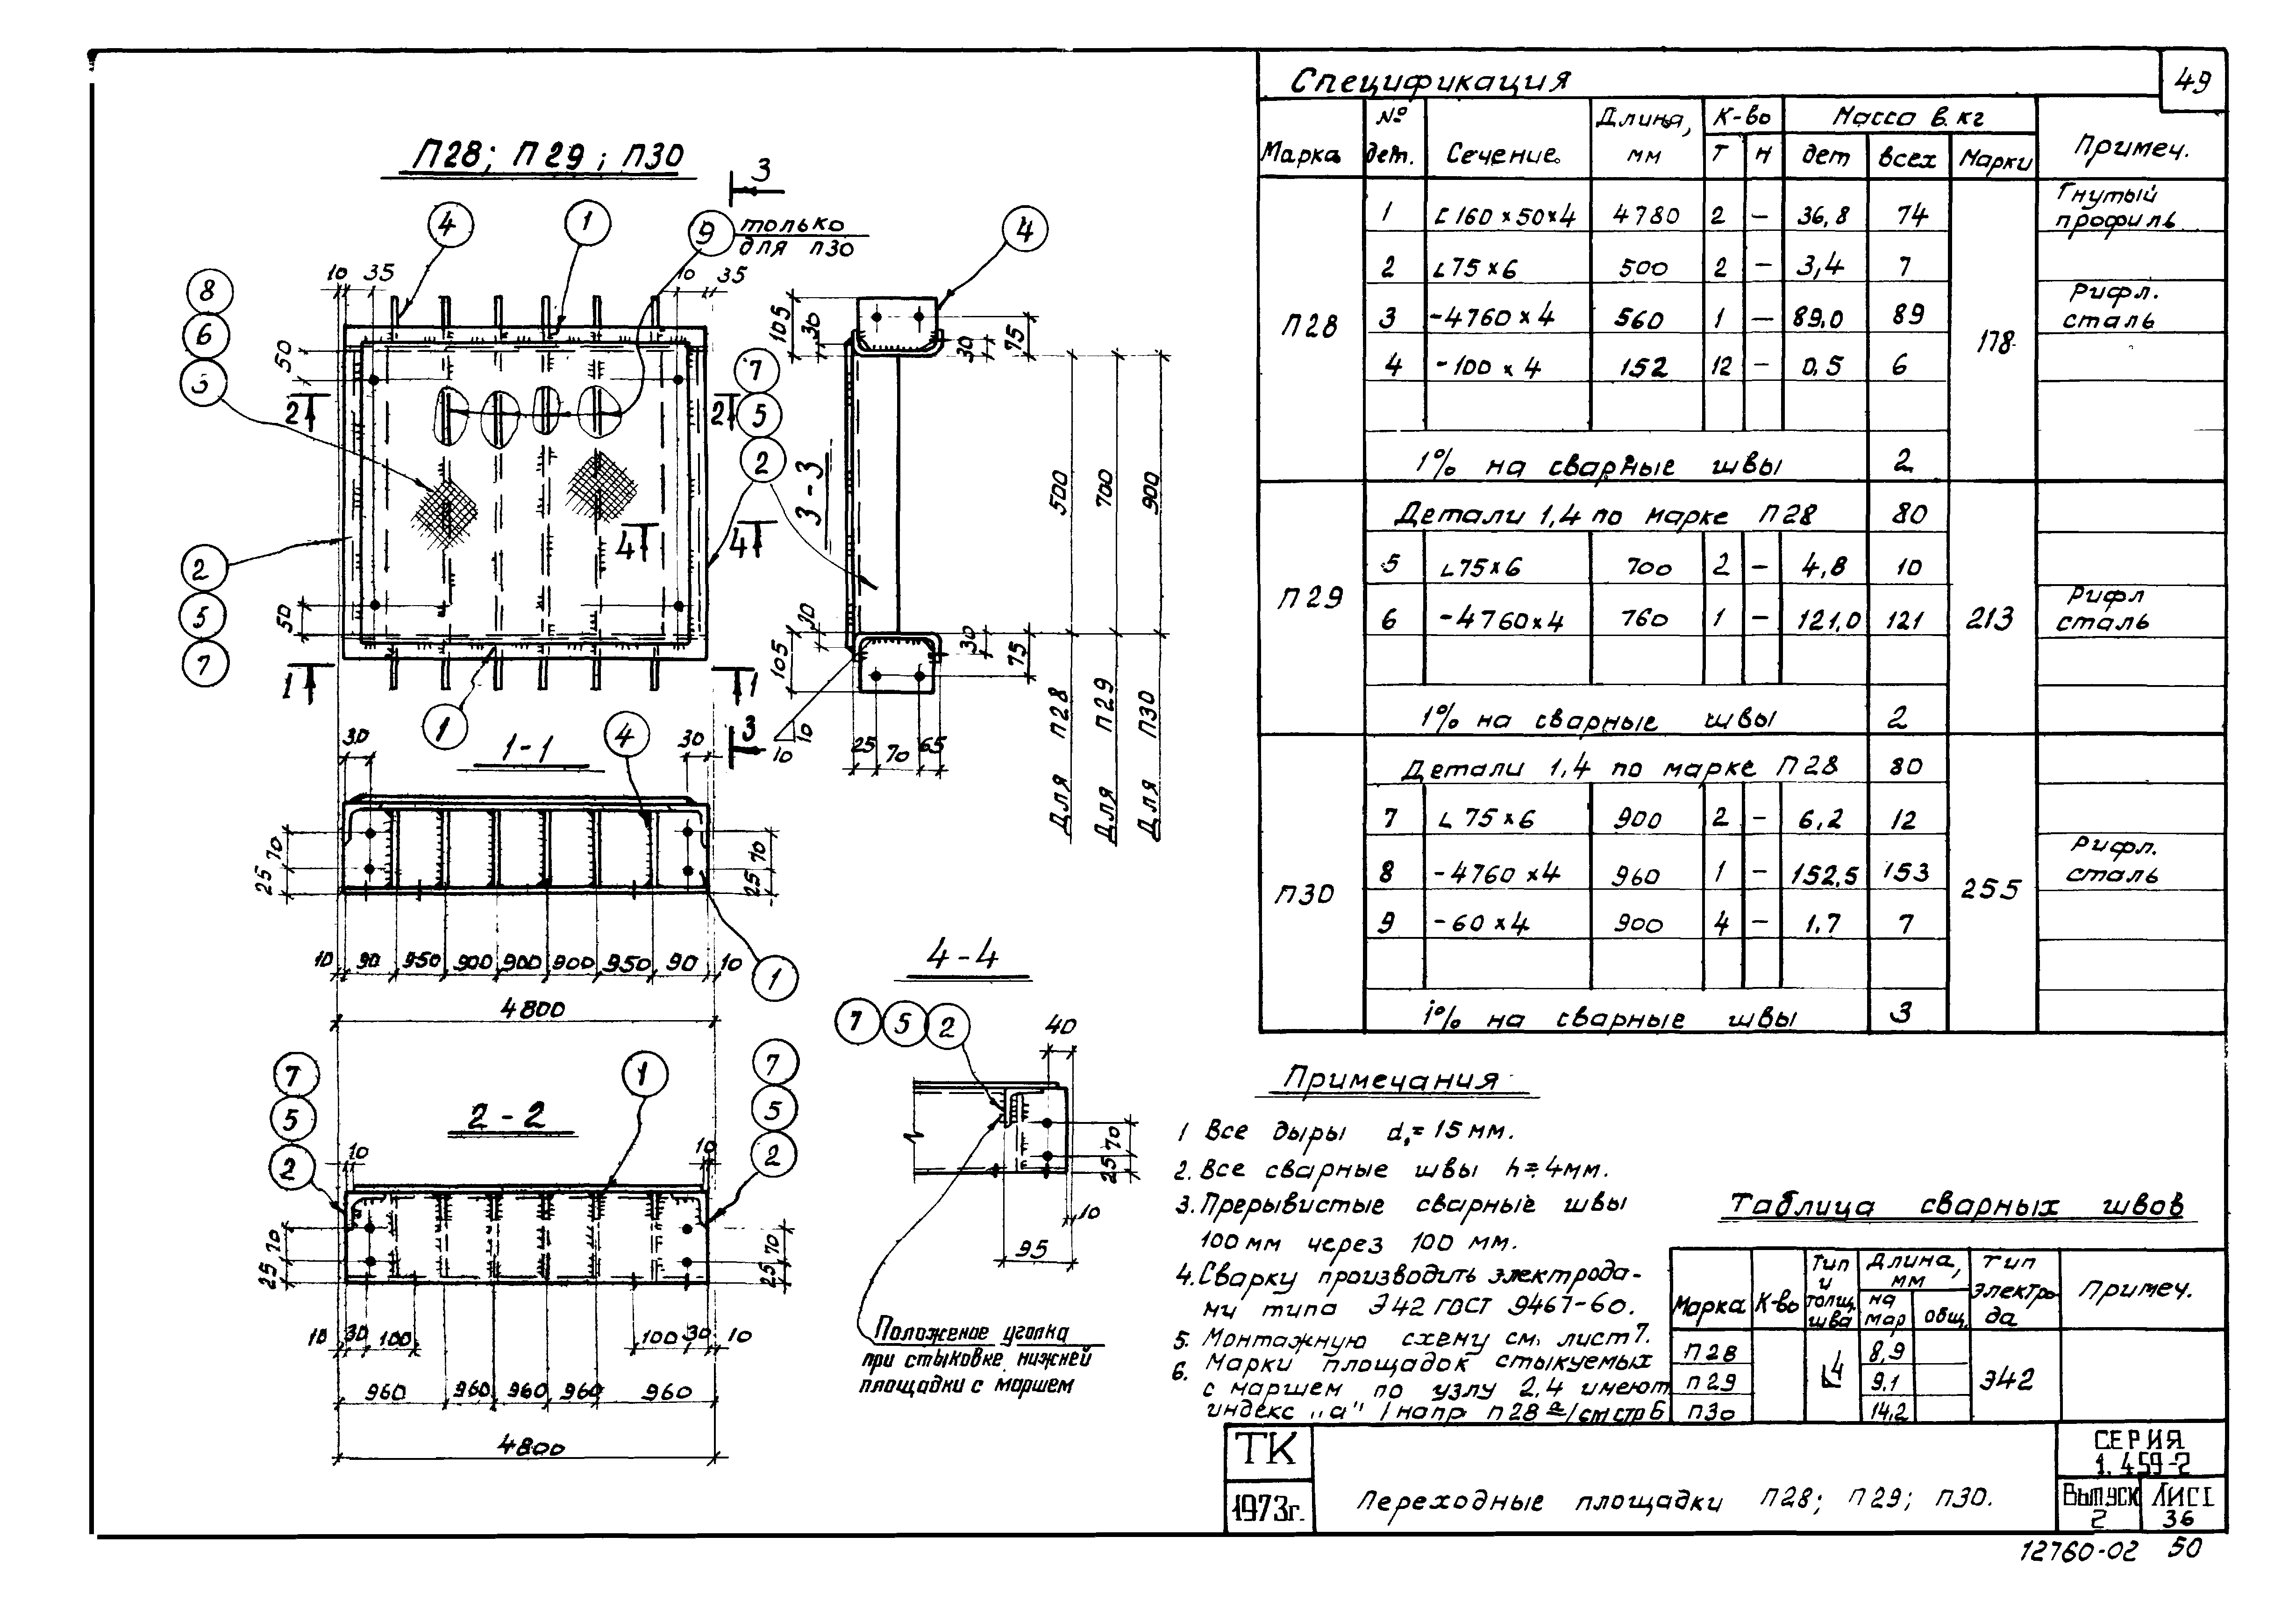 49
П28; П29; П30
3
4
1
9
только
для П30
4
10 35 10 35
8
6
3
50
2 2
7
5
2
4 4
2
5
7
50
1 1
1
3
3-3
105 30 30 75
500 700 900
30 105 30 75
10 10
25 70 65
Для П28
Для П29
Для П30
1-1
4
30 30
70 25 70 25
10 90 950 900 900 900 950 90 10
4800
1
2-2
7
5
2
1
7
5
2
10 10
70 25 70 25
10 30 100 100 30 10
960 960 960 960 960
4800
4-4
7 5 2
40
70 25
10
95
Положение уголка
при стыковке нижней
площадки с маршем
Спецификация
Марка № дет. Сечение Длина, мм К-во Т Н Масса в кг дет всех Марки Примеч.
П28 1 [160×50×4 4780 2 – 36,8 74 178 Гнутый профиль
2 ∟75×6 500 2 – 3,4 7
3 -4760×4 560 1 – 89,0 89 Рифл. сталь
4 -100×4 152 12 – 0,5 6
1% на сварные швы 2
П29 Детали 1,4 по марке П28 80 213
5 ∟75×6 700 2 – 4,8 10
6 -4760×4 760 1 – 121,0 121 Рифл сталь
1% на сварные швы 2
П30 Детали 1,4 по марке П28 80 255
7 ∟75×6 900 2 – 6,2 12
8 -4760×4 960 1 – 152,5 153 Рифл. сталь
9 -60×4 900 4 – 1,7 7
1% на сварные швы 3
Примечания
1 Все дыры d₁=15мм.
2. Все сварные швы h=4мм.
3. Прерывистые сварные швы
100мм через 100 мм.
4. Сварку производить электрода-
ми типа Э42 ГОСТ 9467-60.
5. Монтажную схему см. лист 7.
6. Марки площадок стыкуемых
с маршем по узлу 2,4 имеют
индекс „а" /напр П28а/ см стр 6
Таблица сварных швов
Марка К-во Тип и толщ. шва Длина, мм на мар общ. Тип электрода Примеч.
П28 4 8,9 Э42
П29 9,1
П30 14,2
ТК
1973г.
Переходные площадки П28; П29; П30.
СЕРИЯ
1.459-2
Выпуск 2
Лист 36
12760-02 50